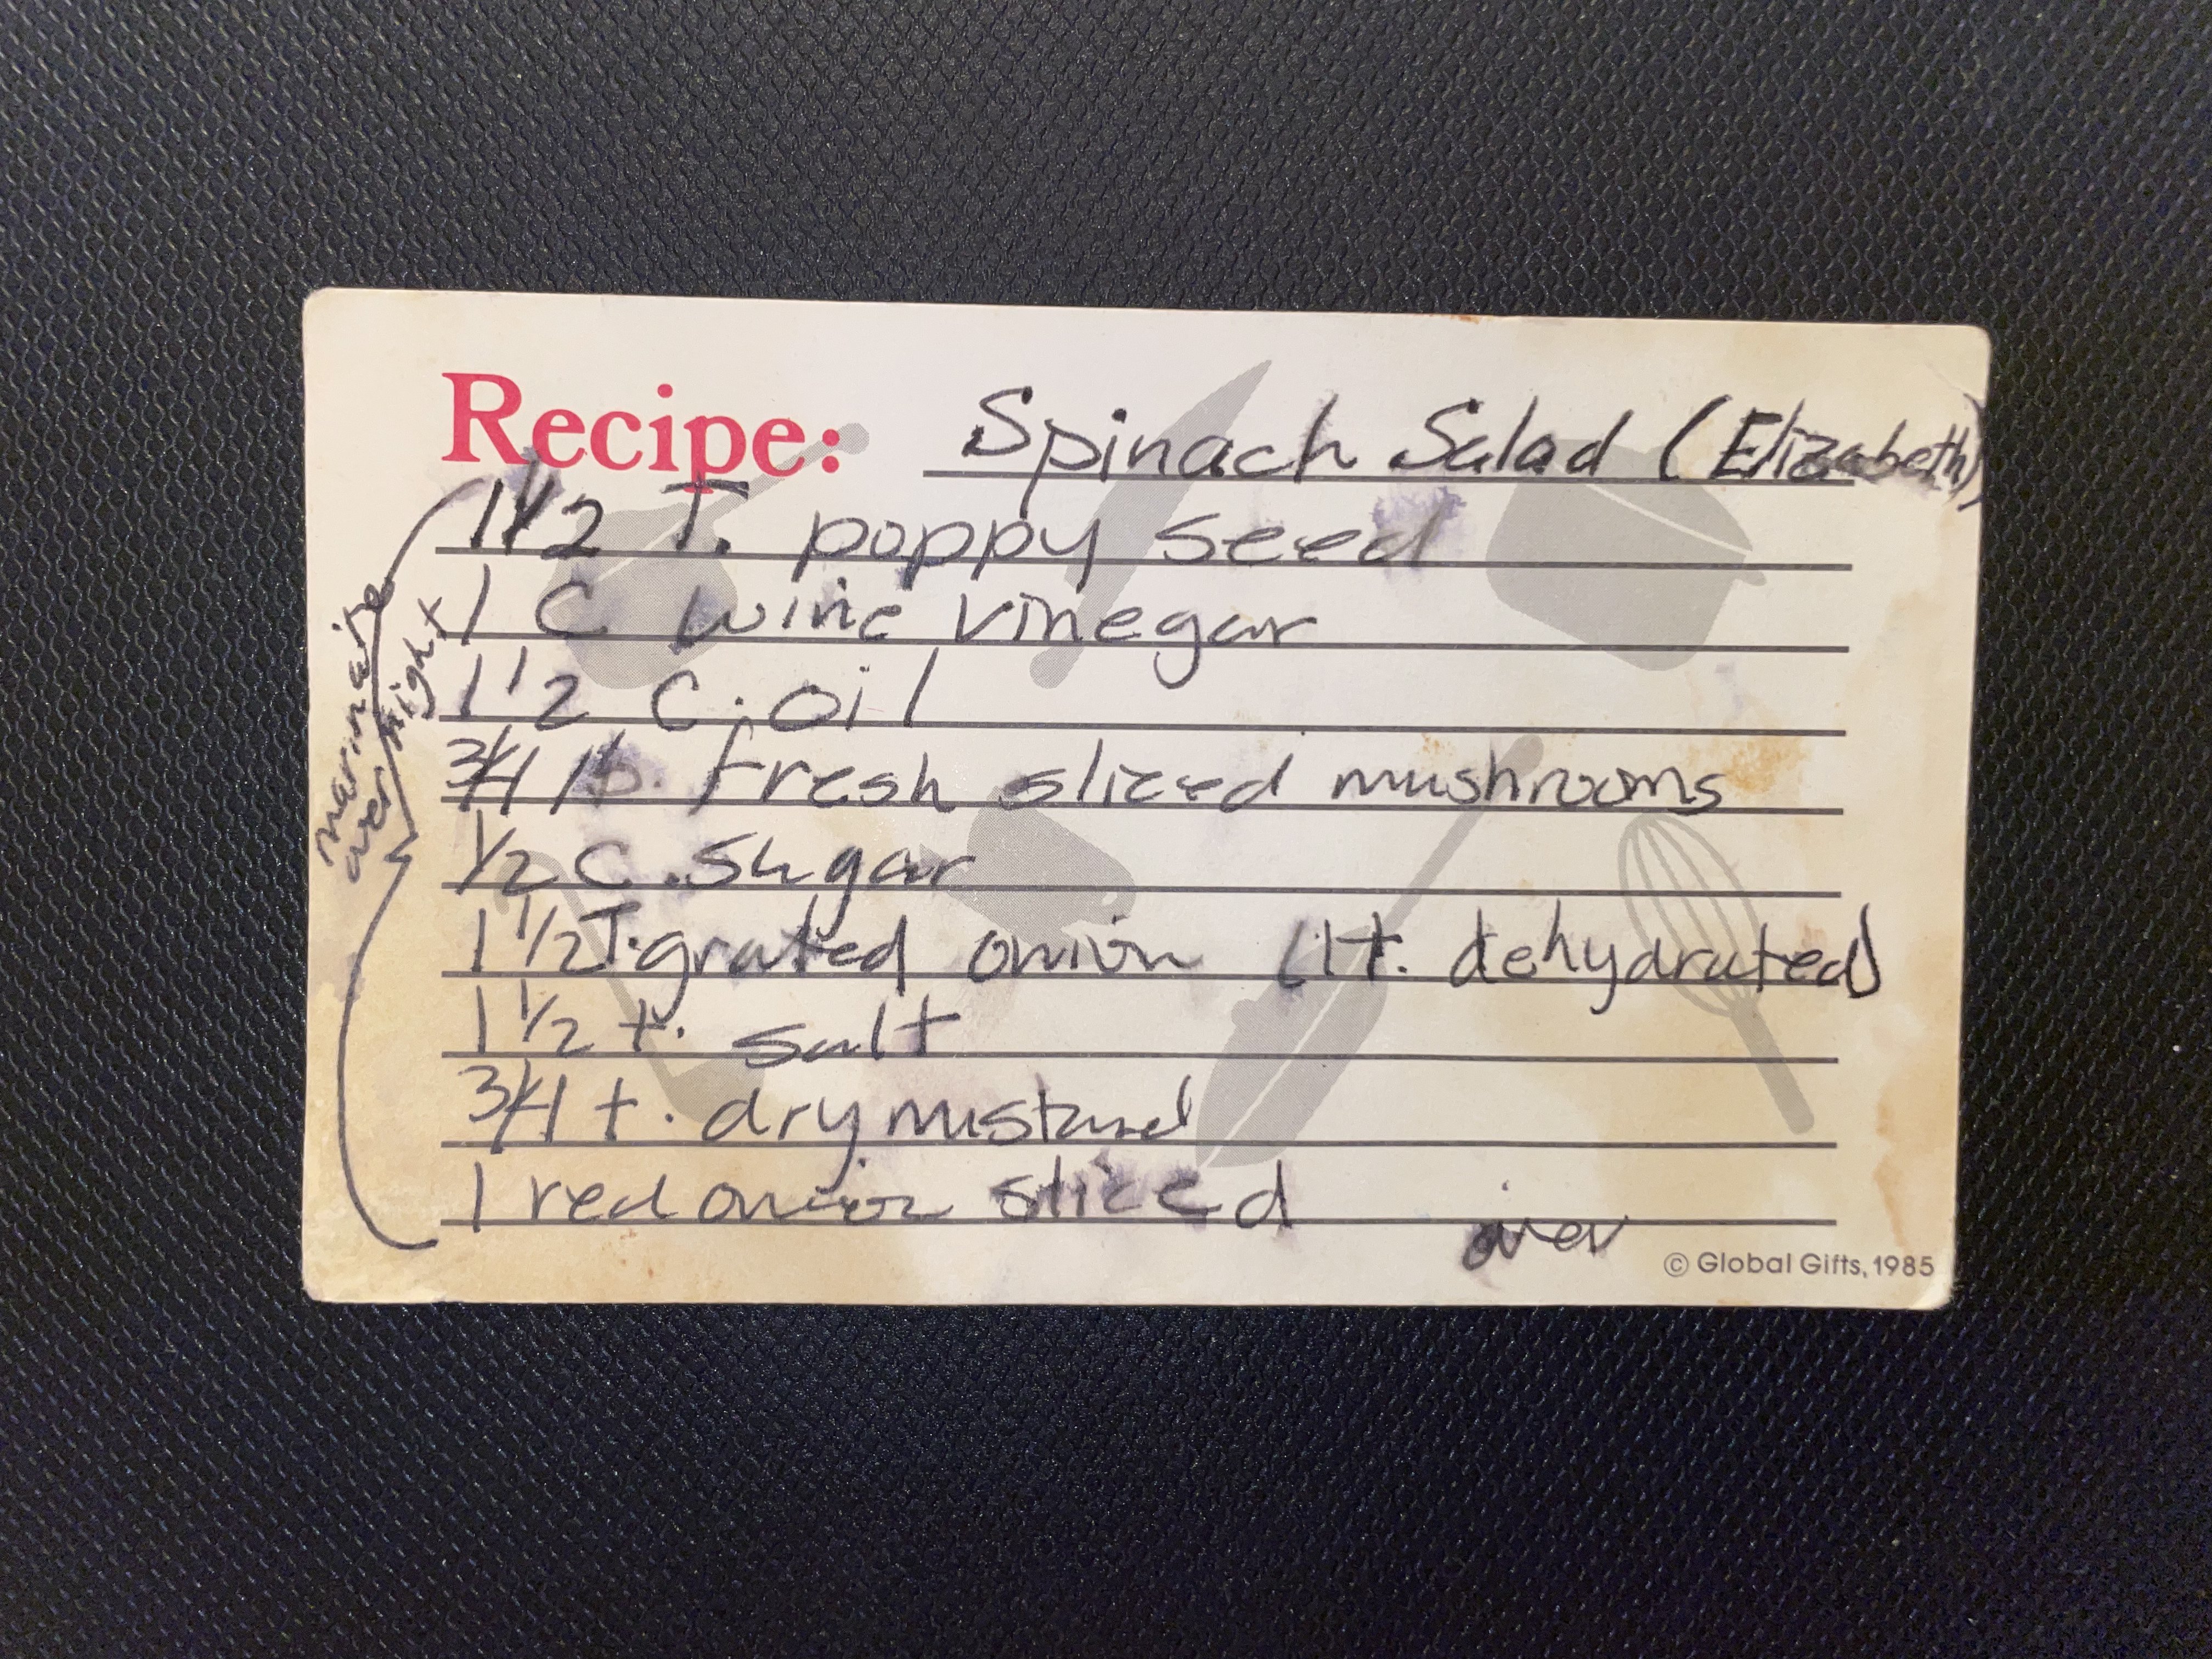 Recipe: Spinach Salad (Elizabeth)
1 1/2 T. poppy seed
1 C wine vinegar
1 1/2 C. oil
3/4 lb. fresh sliced mushrooms
1/2 C. sugar
1 1/2 T. grated onion (1 t. dehydrated)
1 1/2 t. salt
3/4 t. dry mustard
1 red onion sliced
over
marinate
over night
© Global Gifts, 1985